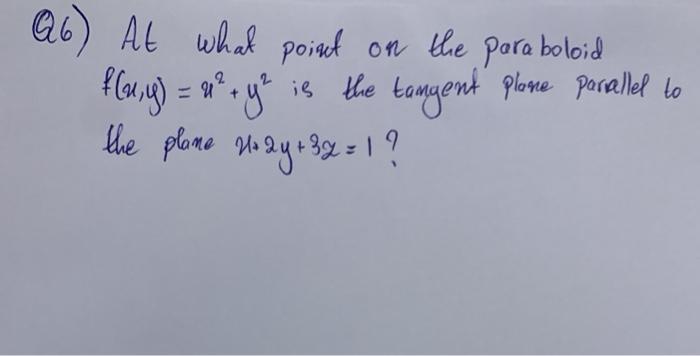 Q6) At what point on the paraboloid
f(x,y) = x² + y² is the tangent plane parallel to
the plane x+2y+3z=1?